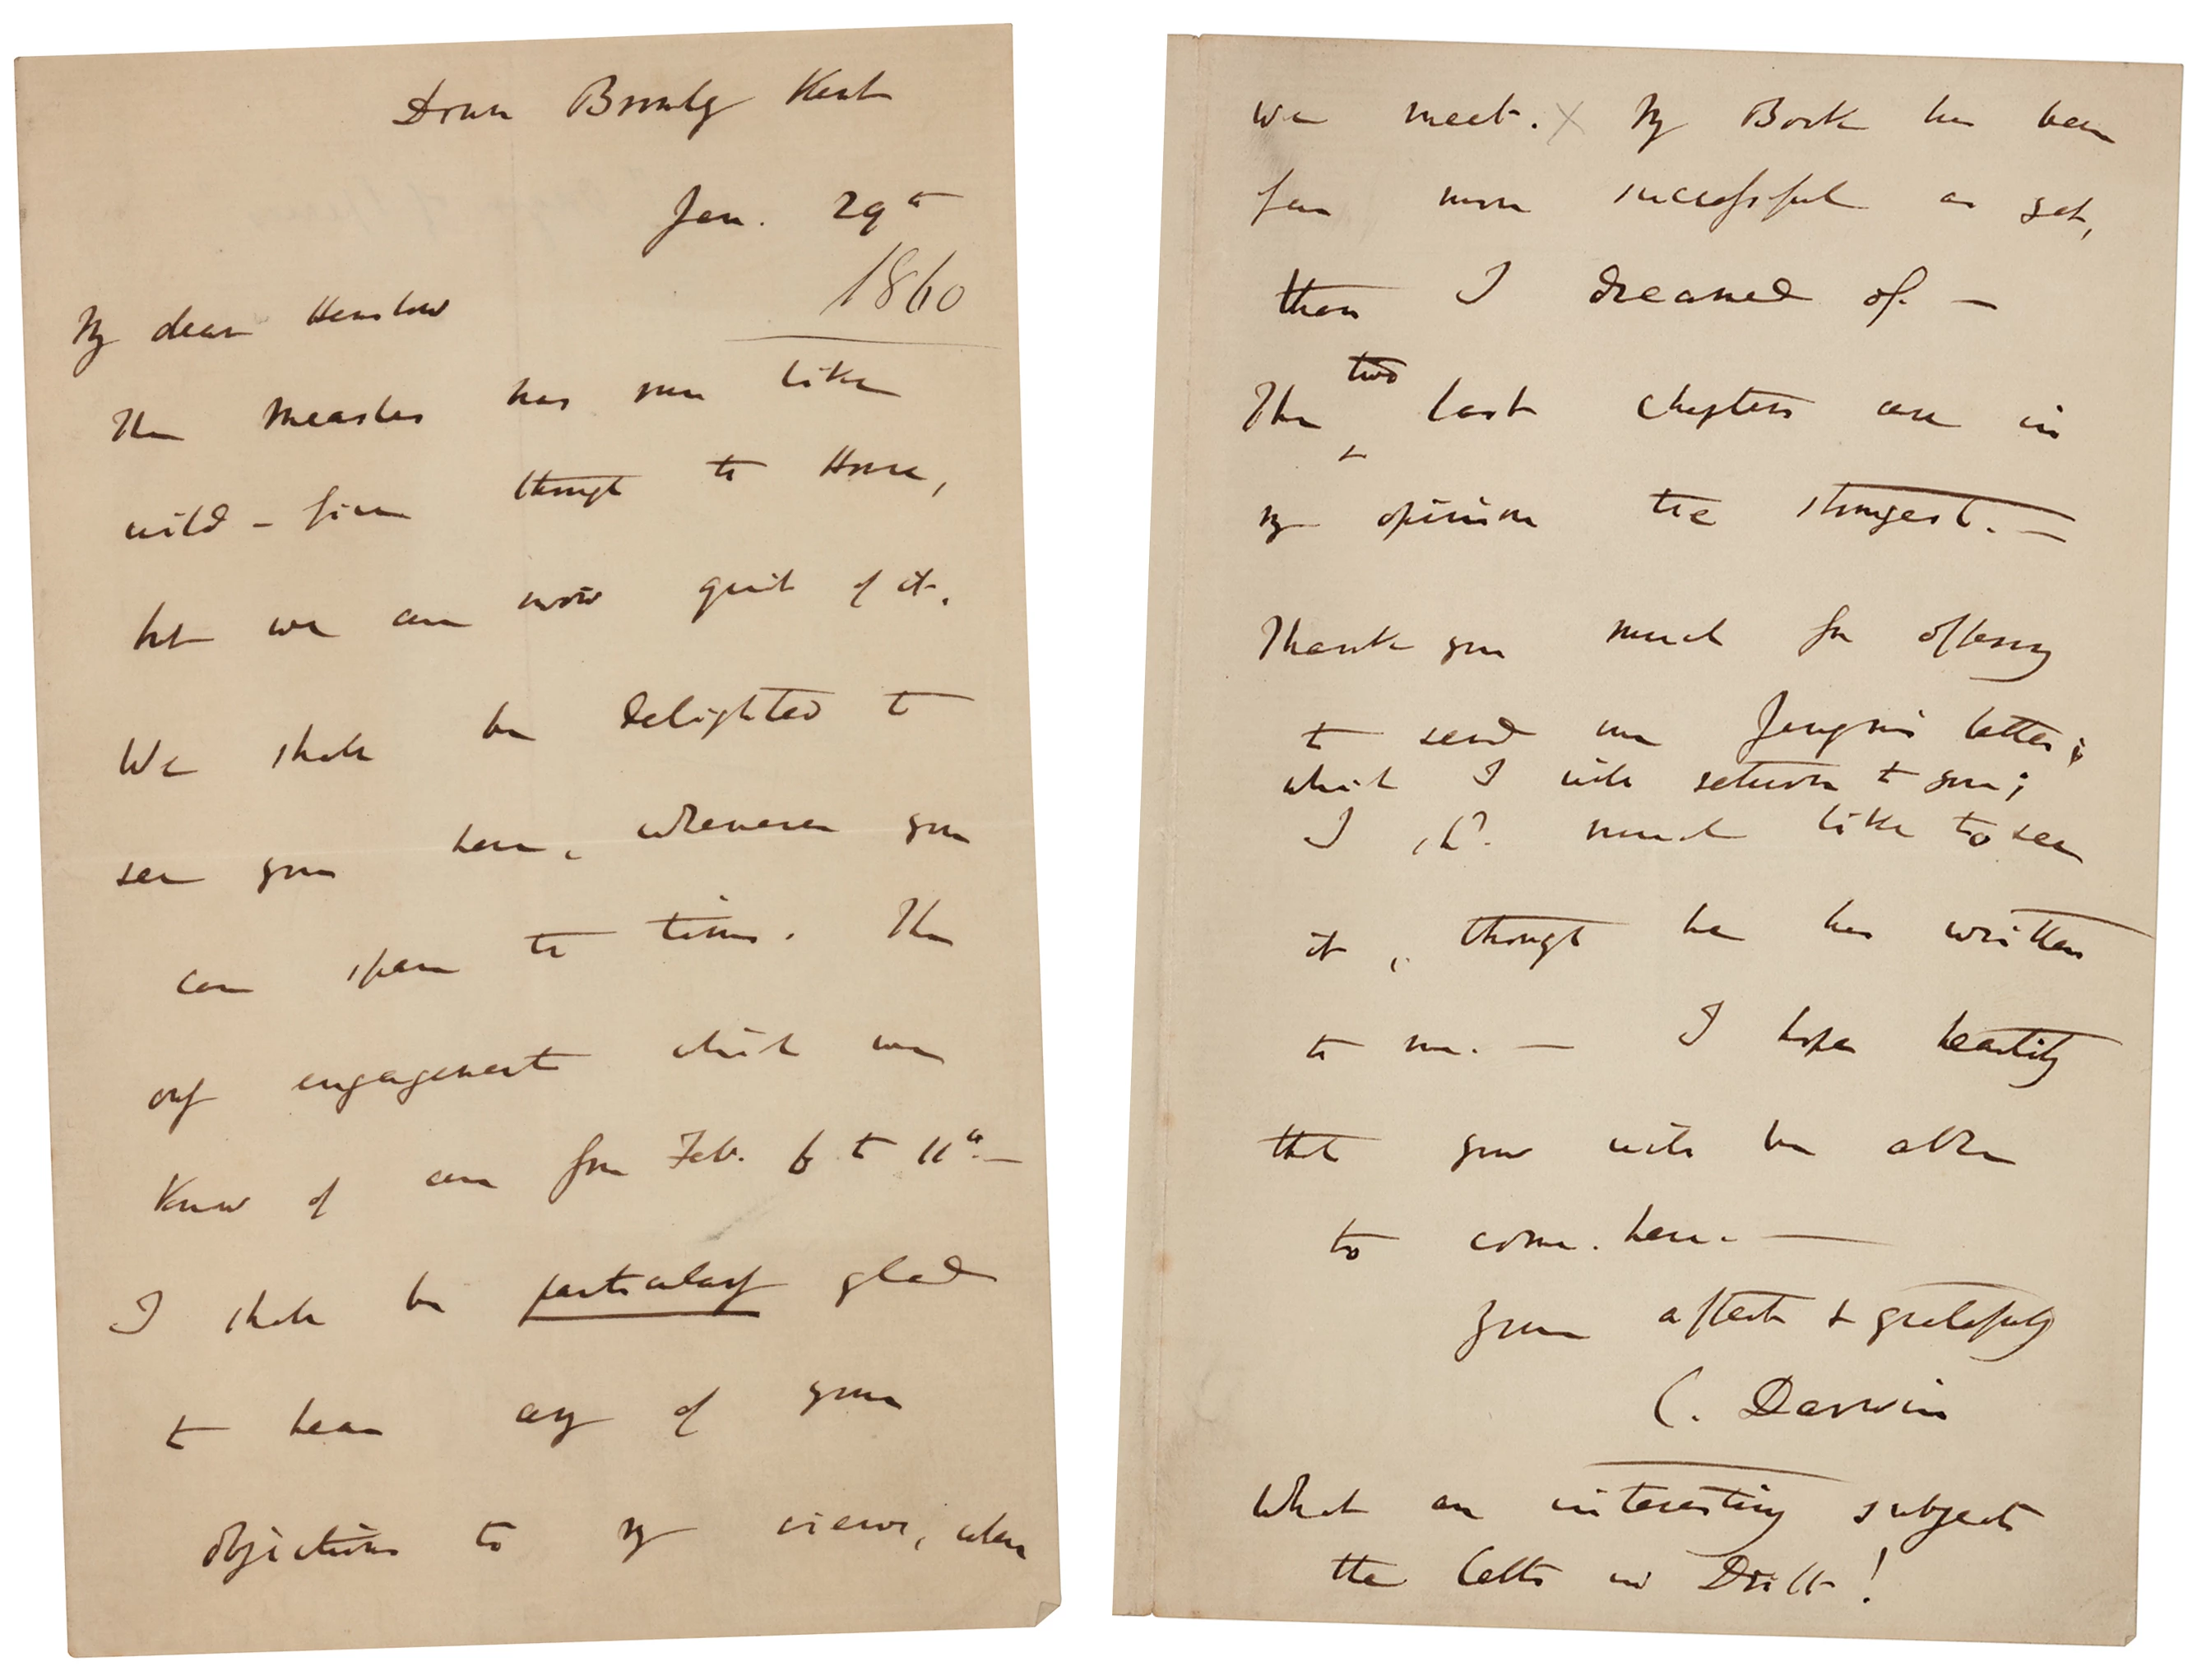 Down Bromley Kent
Jan. 29th
1860
My dear Henslow
The Measles has run like
wild-fire through the House,
but we are now quit of it.
We shall be delighted to
see you here, whenever you
can spare the time. The
only engagement which we
know of are from Feb. 6 to 11th.—
I shall be particularly glad
to hear any of your
objections to my views, when
we meet. X My Book has been
far more successful as yet,
than I dreamed of.—
two
The ^ last chapters are in
my opinion the strongest.—
Thank you much for offering
to send me Jenyns' letter;
which I will return to you;
I shd. much like to see
it, though he has written
to me.— I hope heartily
that you will be able
to come here.—
Yours affect & gratefully
C. Darwin
What an interesting subject
the Celts in Drift!